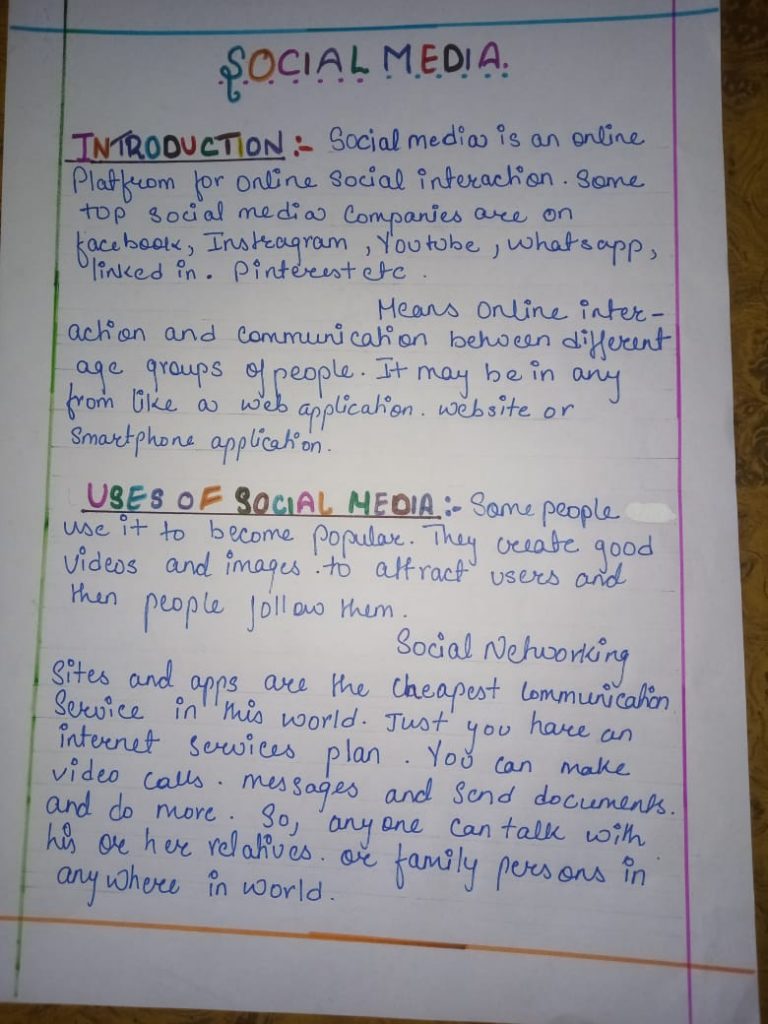 SOCIAL MEDIA.
INTRODUCTION :- Social media is an online
Platfrom for online social interaction. Some
top social media Companies are on
facebook, Instragram, Youtube, whatsapp,
linked in. Pinterest etc.
Means Online inter-
action and communication between different
age groups of people. It may be in any
from like a web application. website or
Smartphone application.
USES OF SOCIAL MEDIA :- Some people
use it to become popular. They create good
videos and images. to attract users and
then people follow them.
Social Networking
Sites and apps are the cheapest communication
Service in this world. Just you have an
internet services plan. You can make
video calls. messages and send documents.
and do more. So, anyone can talk with
his or her relatives. or family persons in
anywhere in world.